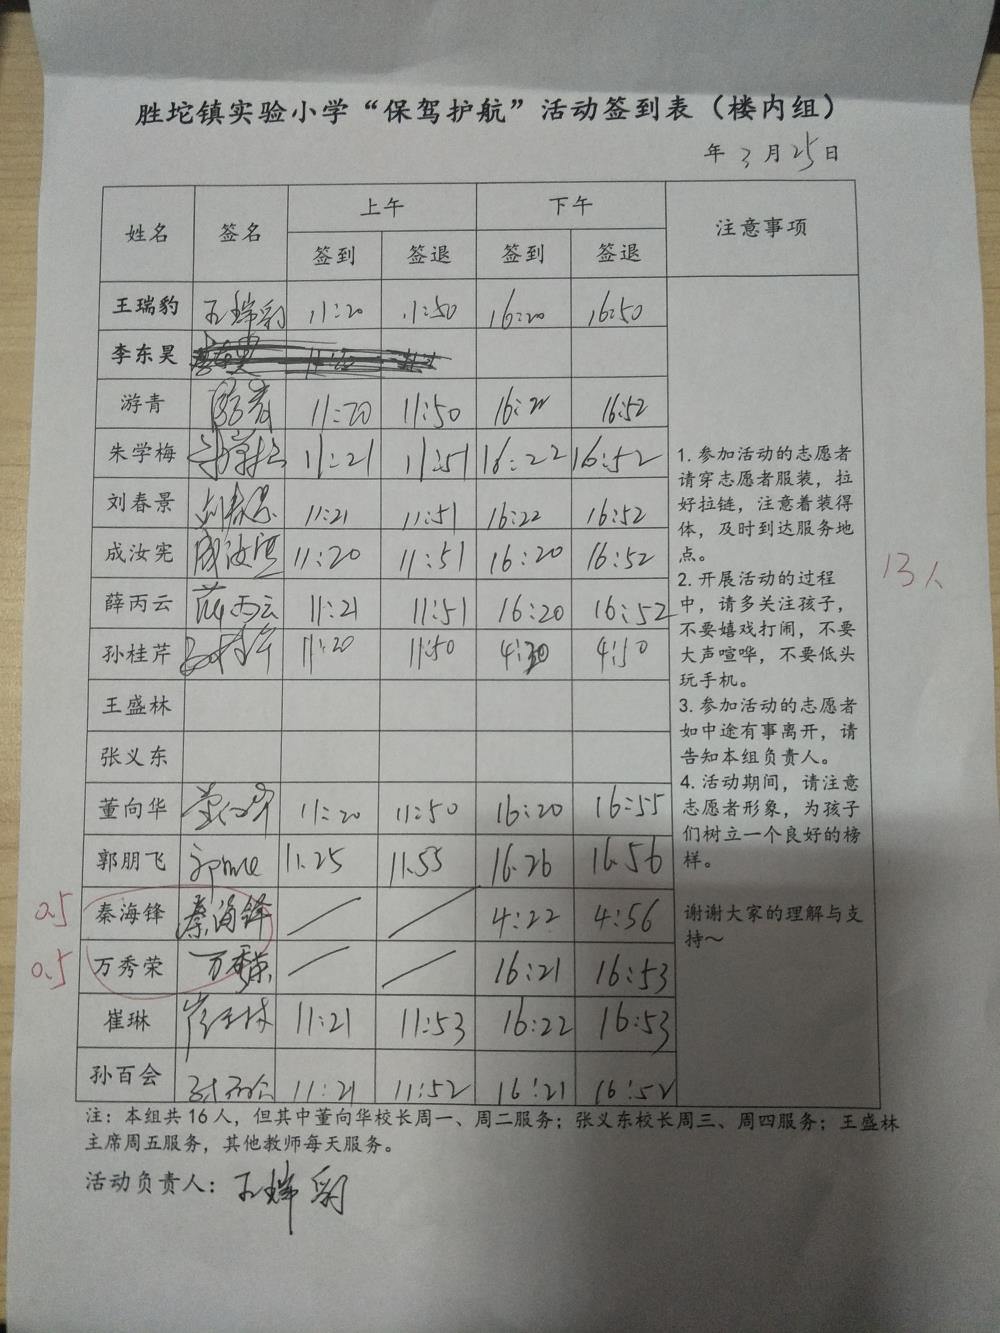 胜坨镇实验小学“保驾护航”活动签到表（楼内组）
年 3 月 25 日
姓名 签名 上午 下午 注意事项
签到 签退 签到 签退
王瑞豹 王瑞豹 11:20 11:50 16:20 16:50
李东昊
游青 游青 11:20 11:50 16:21 16:52
朱学梅 朱学梅 11:21 11:51 16:22 16:52
刘春景 刘春景 11:21 11:51 16:22 16:52
成汝宪 成汝宪 11:20 11:51 16:20 16:52
薛丙云 薛丙云 11:21 11:51 16:20 16:52
孙桂芹 孙桂芹 11:20 11:50 4:20 4:50
王盛林
张义东
董向华 董向华 11:20 11:50 16:20 16:55
郭朋飞 11.25 11.55 16.26 16.56
0.5 秦海锋 秦海锋 4:22 4:56
0.5 万秀荣 万秀荣 16:21 16:53
崔琳 崔琳 11:21 11:53 16:22 16:53
孙百会 孙百会 11:21 11:52 16:21 16:52
1. 参加活动的志愿者
请穿志愿者服装，拉
好拉链，注意着装得
体，及时到达服务地
点。
2. 开展活动的过程
中，请多关注孩子，
不要嬉戏打闹，不要
大声喧哗，不要低头
玩手机。
3. 参加活动的志愿者
如中途有事离开，请
告知本组负责人。
4. 活动期间，请注意
志愿者形象，为孩子
们树立一个良好的榜
样。
谢谢大家的理解与支
持～
13人
注：本组共 16 人，但其中董向华校长周一、周二服务；张义东校长周三、周四服务；王盛林
主席周五服务，其他教师每天服务。
活动负责人：王瑞豹